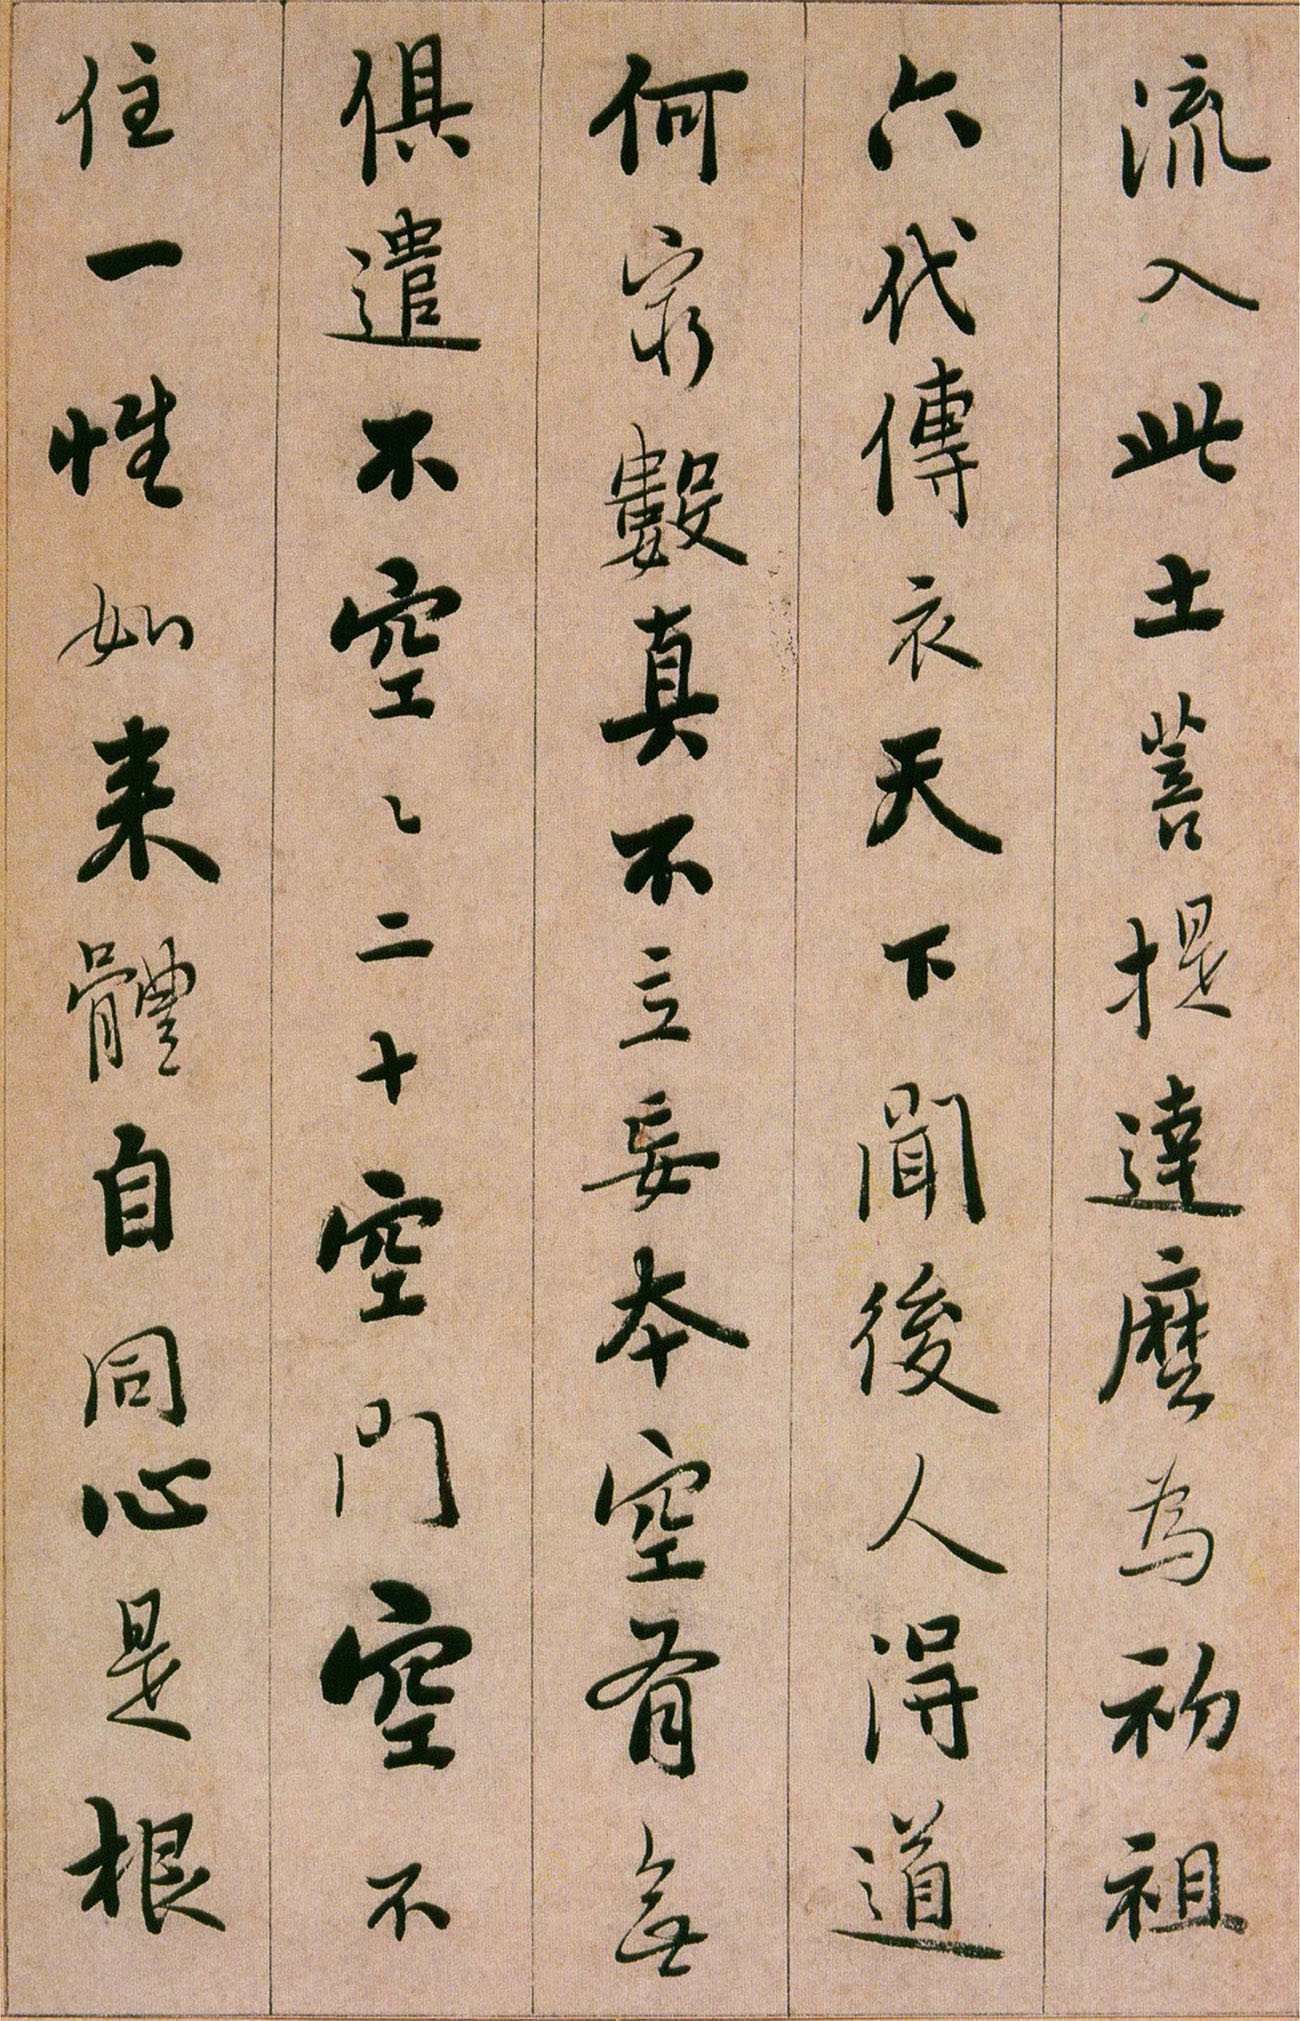 流入此土菩提達麽為初祖
六代傳衣天下聞後人得道
何窮數真不立妄本空有無
俱遣不空〻二十空門空不
住一性如来體自同心是根